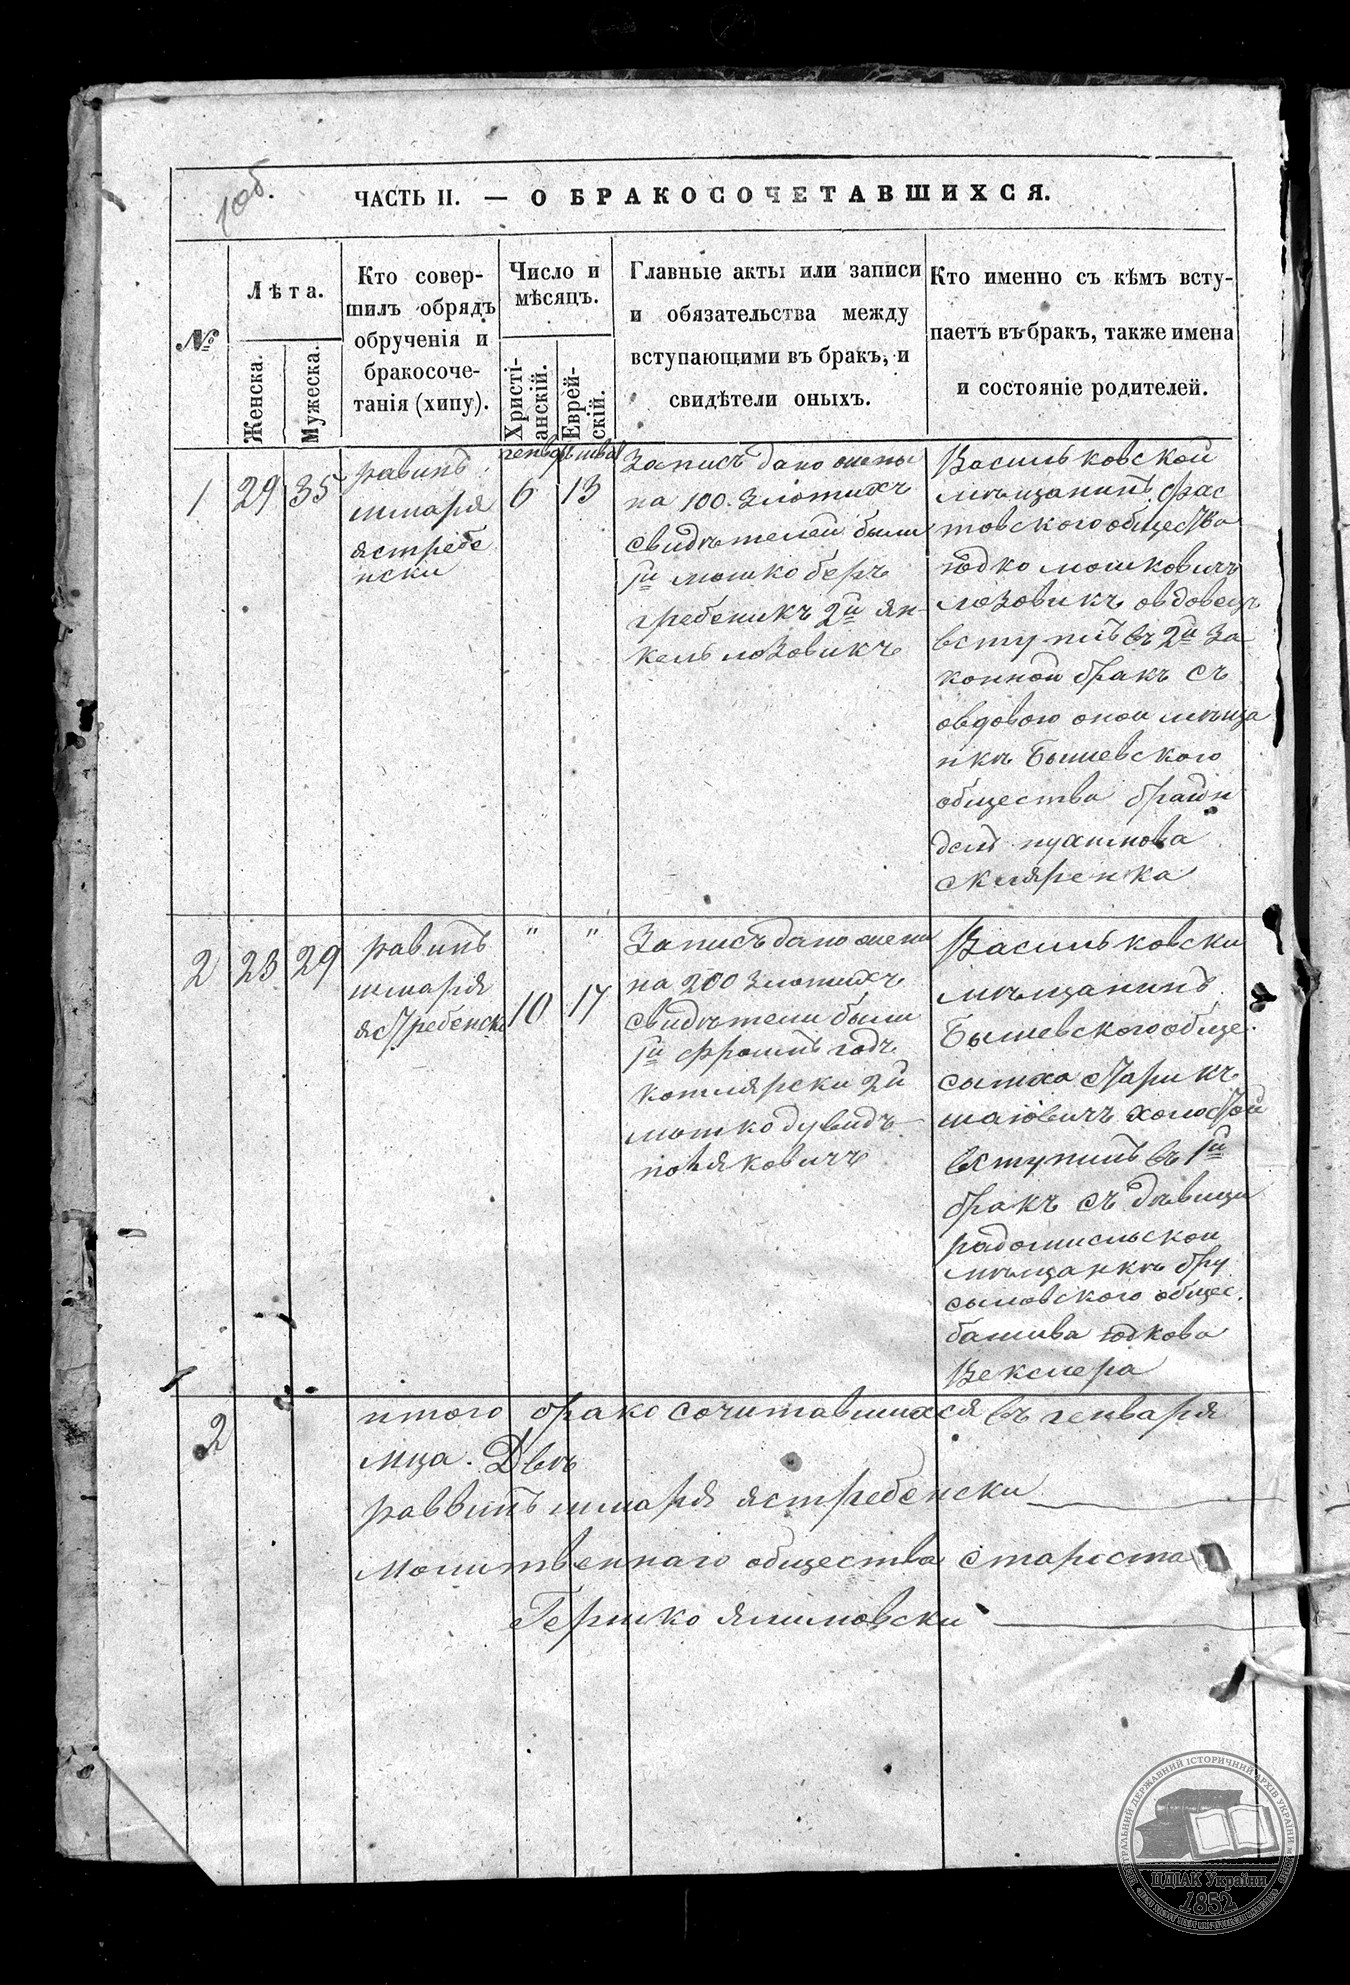 1 об.
ЧАСТЬ II. — О БРАКОСОЧЕТАВШИХСЯ.
№
Лѣта.
Женска.
Мужеска.
Кто совер-
шилъ обрядъ
обрученія и
бракосоче-
танія (хипу).
Число и
мѣсяцъ.
Христі-
анскій.
Еврей-
скій.
Главные акты или записи
и обязательства между
вступающими въ бракъ, и
свидѣтели оныхъ.
Кто именно съ кѣмъ всту-
паетъ въ бракъ, также имена
и состояніе родителей.
1
29
35
равинъ
шмаря
ястребе
нски
генварь
шват
6
13
Запись дано жены
на 100 злотихъ
свидѣтелей были
1й мошко беръ
гребеникъ 2й ян-
кель лозовикъ
Васильковской
мѣщанинъ фас
товского общества
юдко мошковичъ
лозовикъ овдовецъ
вступилъ въ 2й за
конной бракъ съ
овдовою оной мѣща
нкѣ Бышевского
общества браин
дель нухимова
скляренка
2
23
29
равинъ
шмаря
ястребенски
"
"
10
17
Запись дано жени
на 200 злотихъ
свидѣтели были
1й фроимъ годъ
котлярски 2й
мошко дувидъ
Васильковски
мѣщанинъ
Бышевского обще.
симха старикъ
шаювичъ холостой
вступилъ въ 1й
бракъ съ дѣвици
радомисльской
мѣщанкѣ бру
силовского общес.
башива юдкова
Векслера
2
итого бракосочитавшихся въ генваря
мца. Двѣ
раввинъ шмаря ястребенски
молитвеннаго общества староста
Гершко ялимовски
ЦЕНТРАЛЬНИЙ ДЕРЖАВНИЙ ІСТОРИЧНИЙ АРХІВ УКРАЇНИ, м. КИЇВ
ЦДІАК України
1852